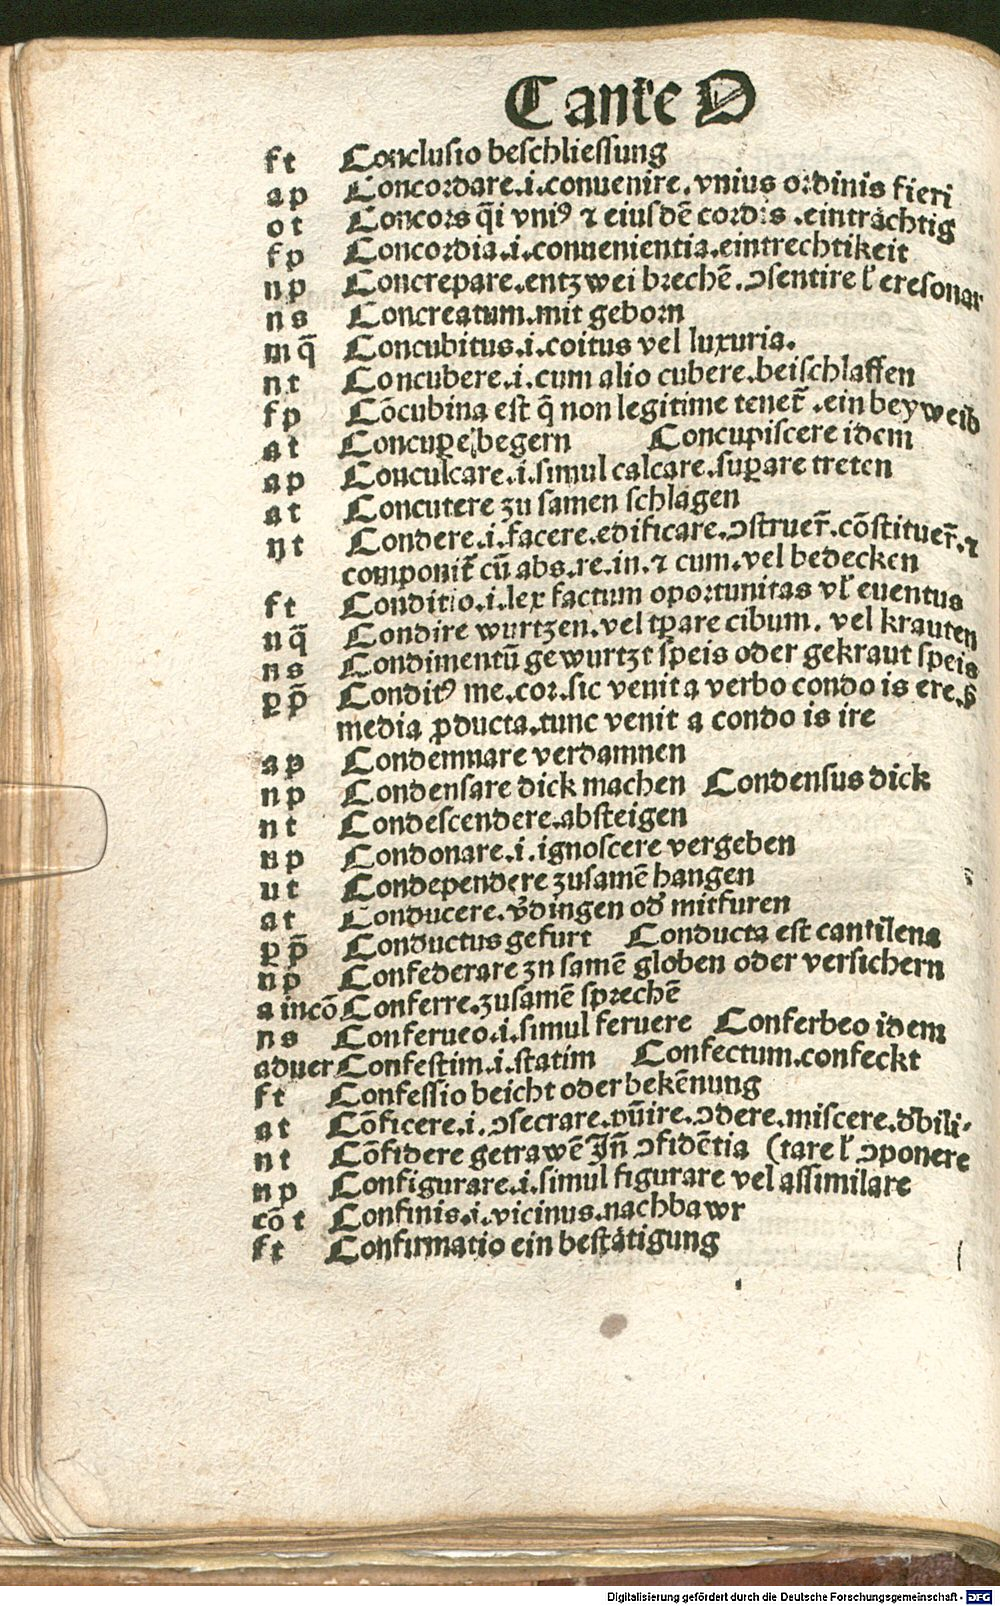 C ante O
ft Conclusio beschliessung
ap Concordare.i.conuenire.vnius ordinis fieri
ot Concors q̄i vniꝰ ⁊ eiusdē cordis .einträchtig
fp Concordia.i.conuenientia.eintrechtikeit
np Concrepare.entzwei brechē.ↄsentire l̕ eresonar
ns Concreatum.mit geborn
mq̄ Concubitus.i.coitus vel luxuria.
nt Concubere.i.cum alio cubere.beischlaffen
fp Cōcubina est q̄ non legitime tenet̄ .ein beyweib
at Concuꝑe begern Concupiscere idem
ap Conculcare.i.simul calcare.suꝑare treten
at Concutere zu samen schlagen
nt Condere.i.facere.edificare.ↄstruer̄.cōstituer̄.⁊
componit̄ cū abs.re.in.⁊ cum.vel bedecken
ft Conditio.i.lex factum oportunitas vl̕ euentus
nq̄ Condire wurtzen.vel tꝑare cibum. vel krauten
ns Condimentū gewurtzt speis oder gekraut speis
ꝑp̄ Conditꝰ me.cor.sic venit a verbo condo is ere.s̄
media ꝓducta.tunc venit a condo is ire
ap Condemnare verdamnen
np Condensare dick machen Condensus dick
nt Condescendere.absteigen
np Condonare.i.ignoscere vergeben
ut Condependere zusamē hangen
at Conducere.v̄dingen od̕ mitfuren
ꝑp̄ Conductus gefurt Conducta est cantilena
np Confederare zn samē globen oder versichern
a incō Conferre.zusamē sprechē
ns Conferueo.i.simul feruere Conferbeo idem
aduer Confestim.i.statim Confectum.confeckt
ft Confessio beicht oder bekēnung
at Cōficere.i.ↄsecrare.vn̄ire.ↄdere.miscere.d̕bili-
nt Cōfidere getrawē In̄ ↄfidētia (tare l̕ ↄponere
np Configurare.i.simul figurare vel assimilare
cō t Confinis.i.vicinus.nachbawr
ft Confirmatio ein bestätigung
Digitalisierung gefördert durch die Deutsche Forschungsgemeinschaft - DFG